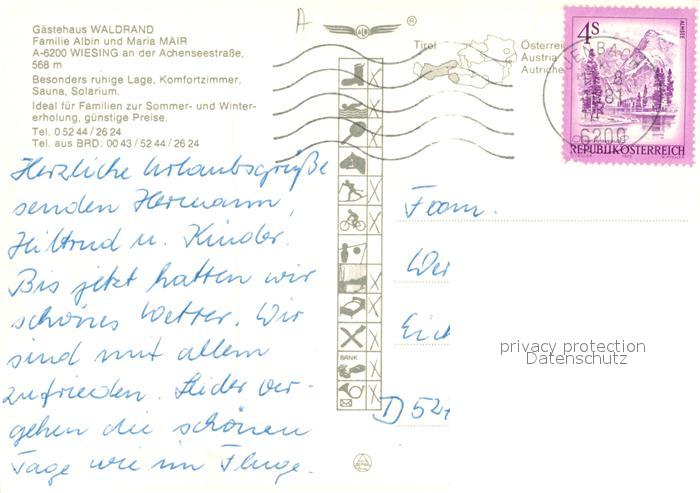 Gästehaus WALDRAND
Familie Albin und Maria MAIR
A-6200 WIESING an der Achenseestraße,
568 m
Besonders ruhige Lage, Komfortzimmer,
Sauna, Solarium.
Ideal für Familien zur Sommer- und Winter-
erholung, günstige Preise.
Tel. 0 52 44 / 26 24
Tel. aus BRD: 00 43 / 52 44 / 26 24
Herzliche Urlaubsgrüße
senden Hermann,
Hiltrud u. Kinder.
Bis jetzt hatten wir
schönes Wetter. Wir
sind mit allem
zufrieden. Leider ver-
gehen die schönen
Tage wie im Fluge.
A
®
Tirol
Österrei
Austria
Autriche
BANK
4 S
ALMSEE
REPUBLIK ÖSTERREICH
81
6200
Fam.
Wer
Eich
D 52
privacy protection
Datenschutz